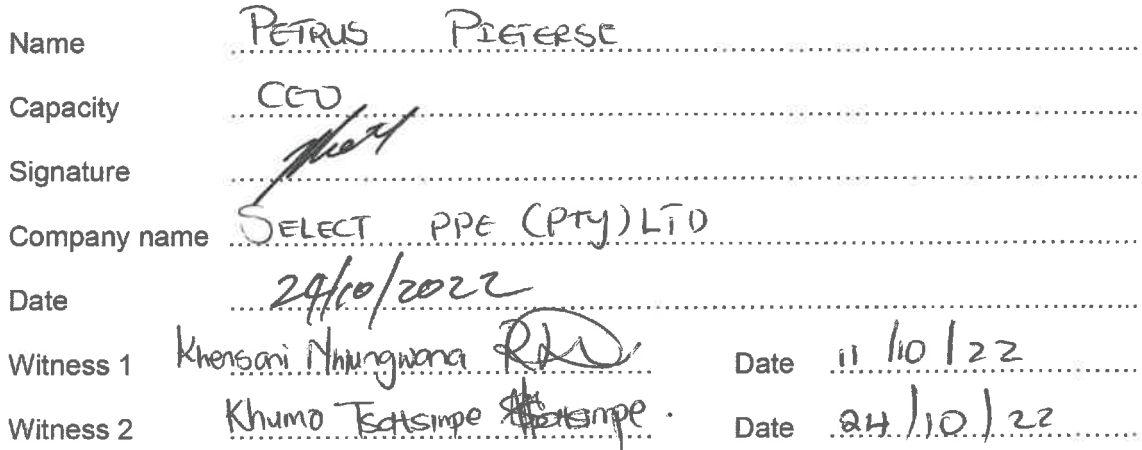 Name PETRUS PIETERSE
Capacity CEO
Signature
Company name SELECT PPE (PTY) LTD
Date 24/10/2022
Witness 1 Khensani Nhlungwana Date 11/10/22
Witness 2 Khumo Tsatsimpe Date 24/10/22